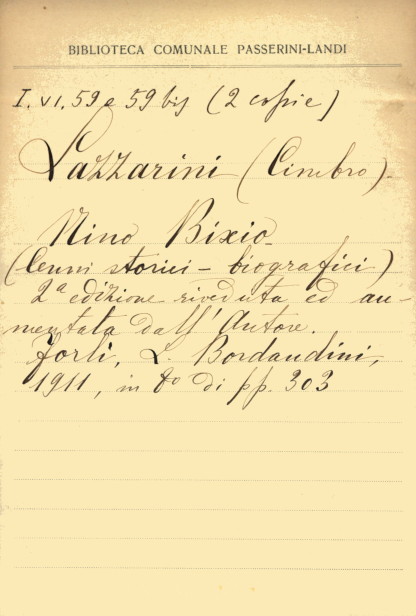 BIBLIOTECA COMUNALE PASSERINI-LANDI
I. VI. 59 e 59 bis (2 copie)
Lazzarini (Cimbro).
Nino Bixio.
(Cenni storici - biografici)
2ª edizione riveduta ed au-
mentata dall'Autore.
Forlì, L. Bordandini,
1911, in 8º di pp. 303